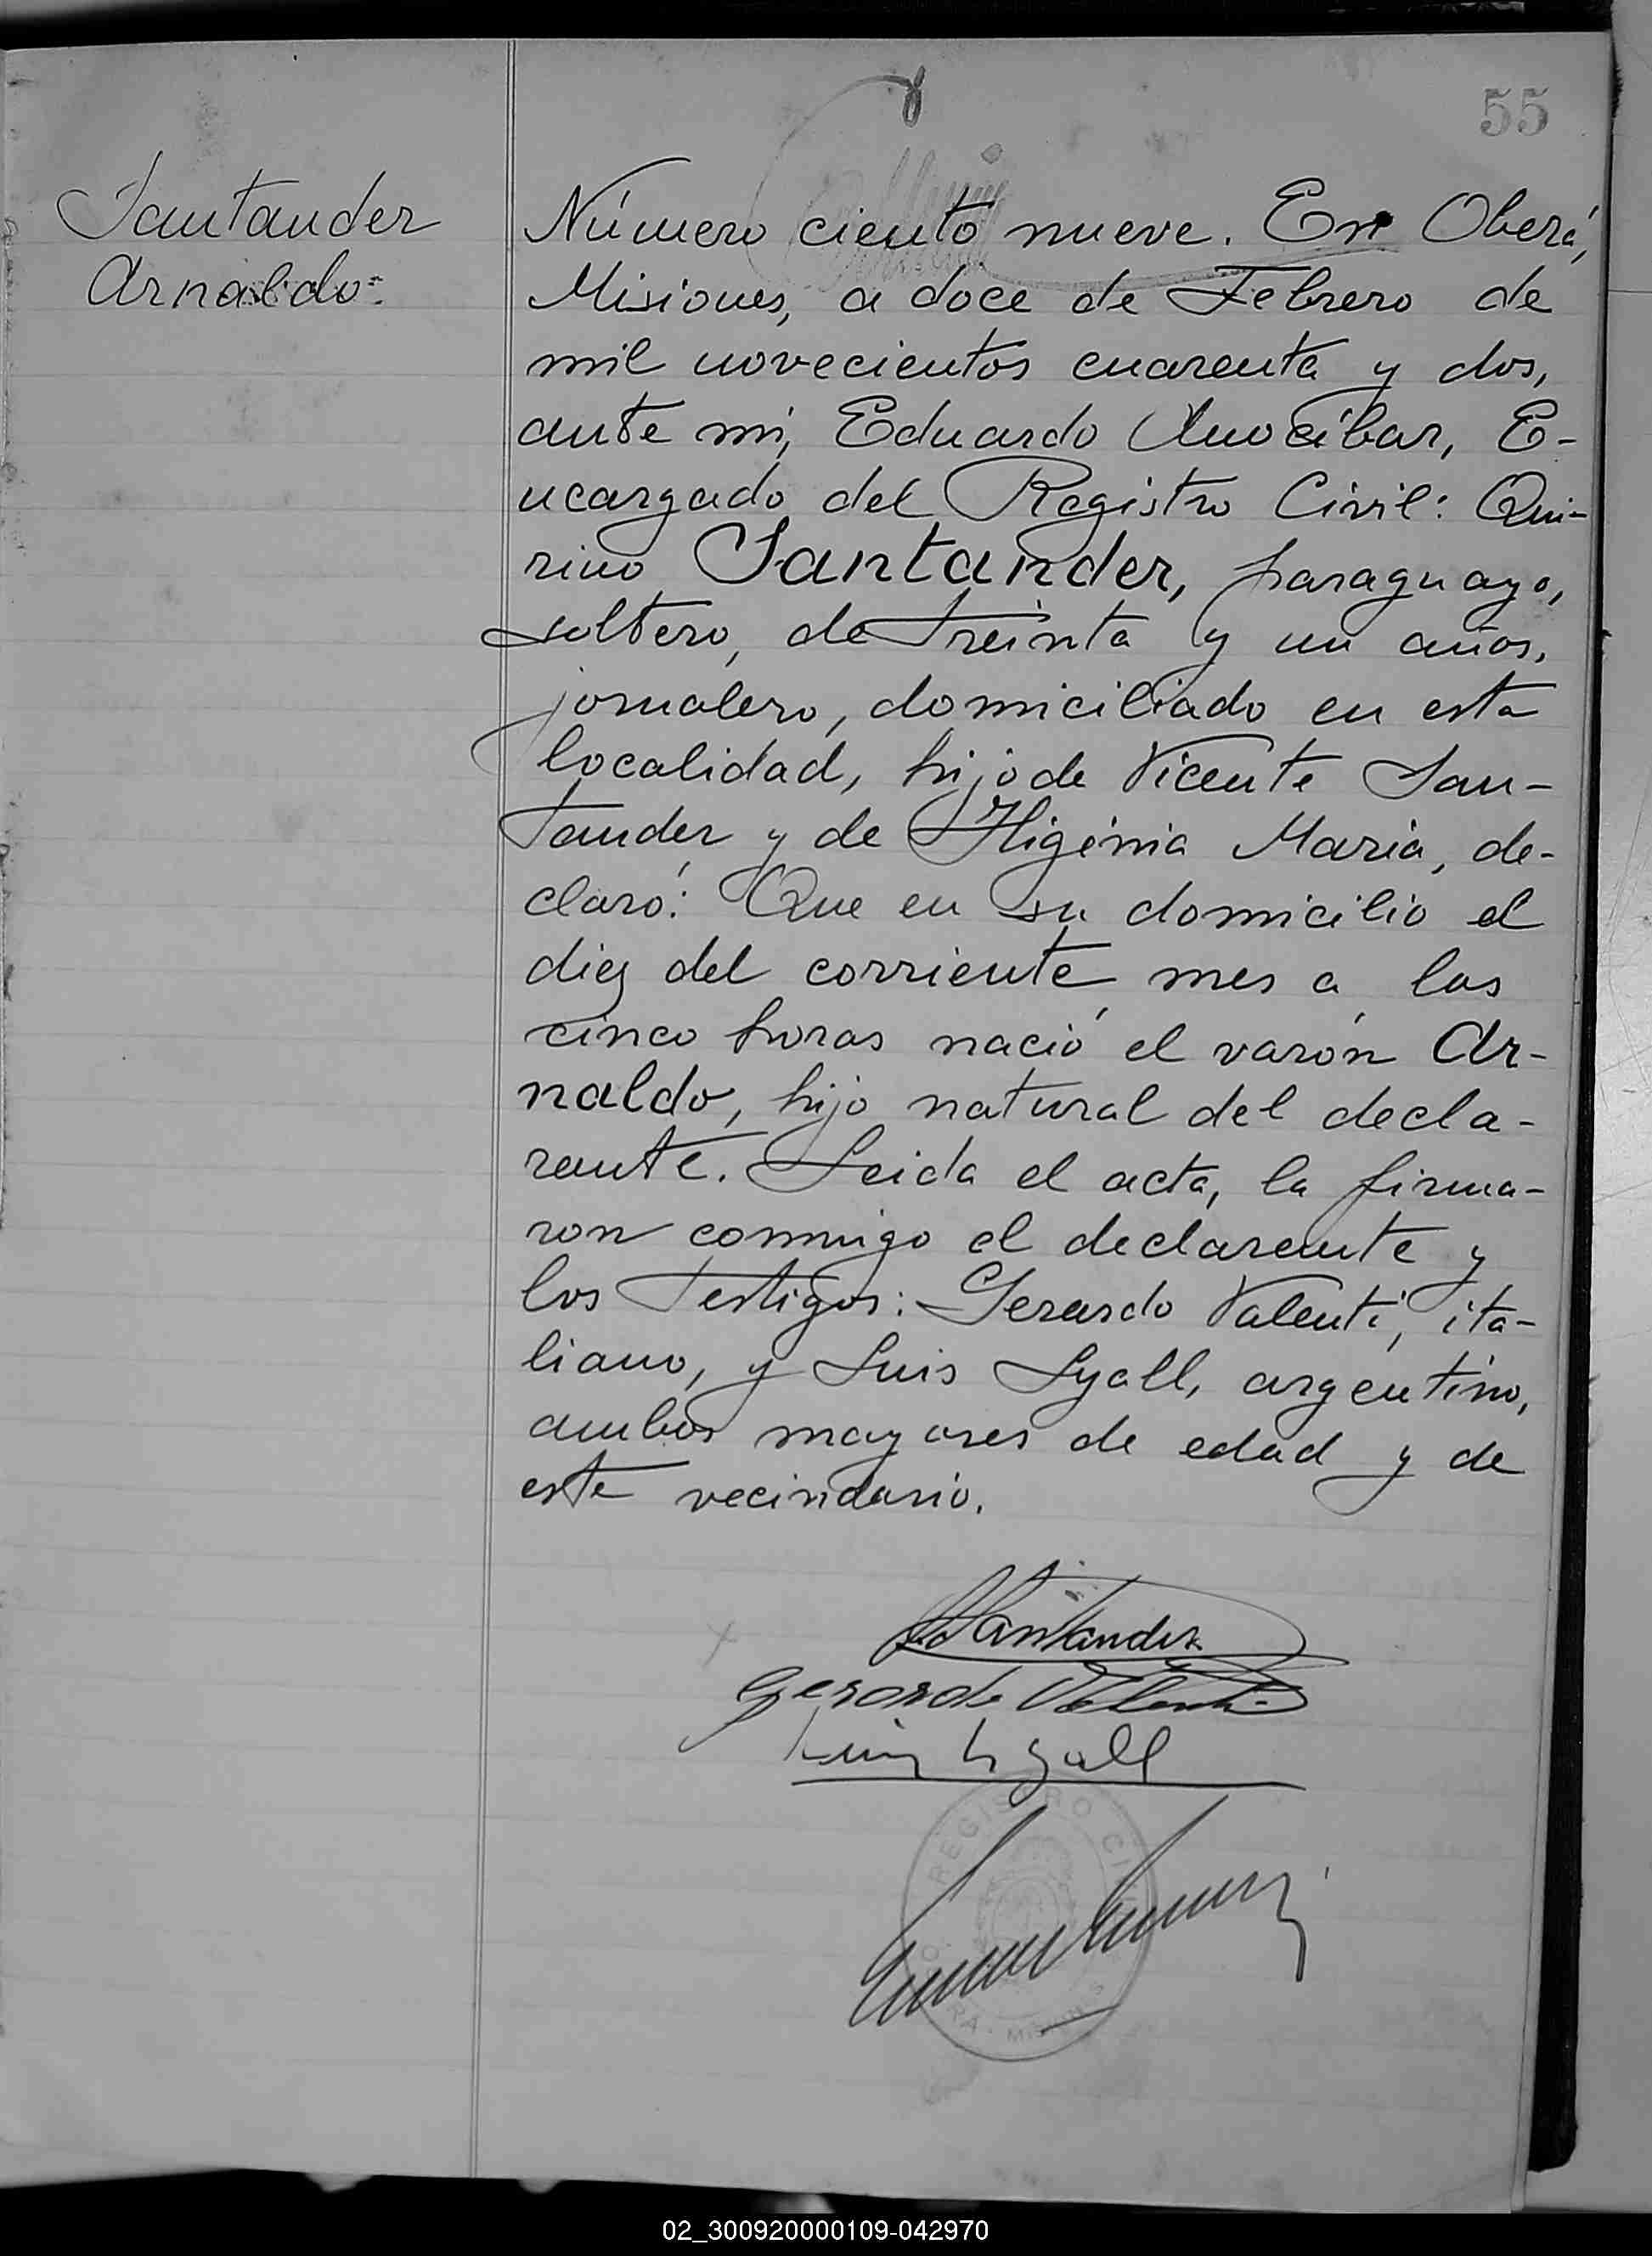 55
Santander
Arnaldo:
Número ciento nueve. En Oberá,
Misiones, a doce de Febrero de
mil novecientos cuarenta y dos,
ante mí, Eduardo Anocíbar, E-
ncargado del Registro Civil: Qui-
rino Santander, paraguayo,
soltero, de treinta y un años,
jornalero, domiciliado en esta
localidad, hijo de Vicente San-
tander y de Higinia María, de-
claró: Que en su domicilio el
diez del corriente mes a las
cinco horas nació el varón Ar-
naldo, hijo natural del decla-
rante. Leida el acta, la firma-
ron conmigo el declarante y
los testigos: Gerardo Valenti, ita-
liano, y Luis Lyall, argentino,
ambos mayores de edad y de
este vecindario.
Santander
Gerardo Valenti
Luis Lyall
REGISTRO CI
RA - MISION
02_300920000109-042970